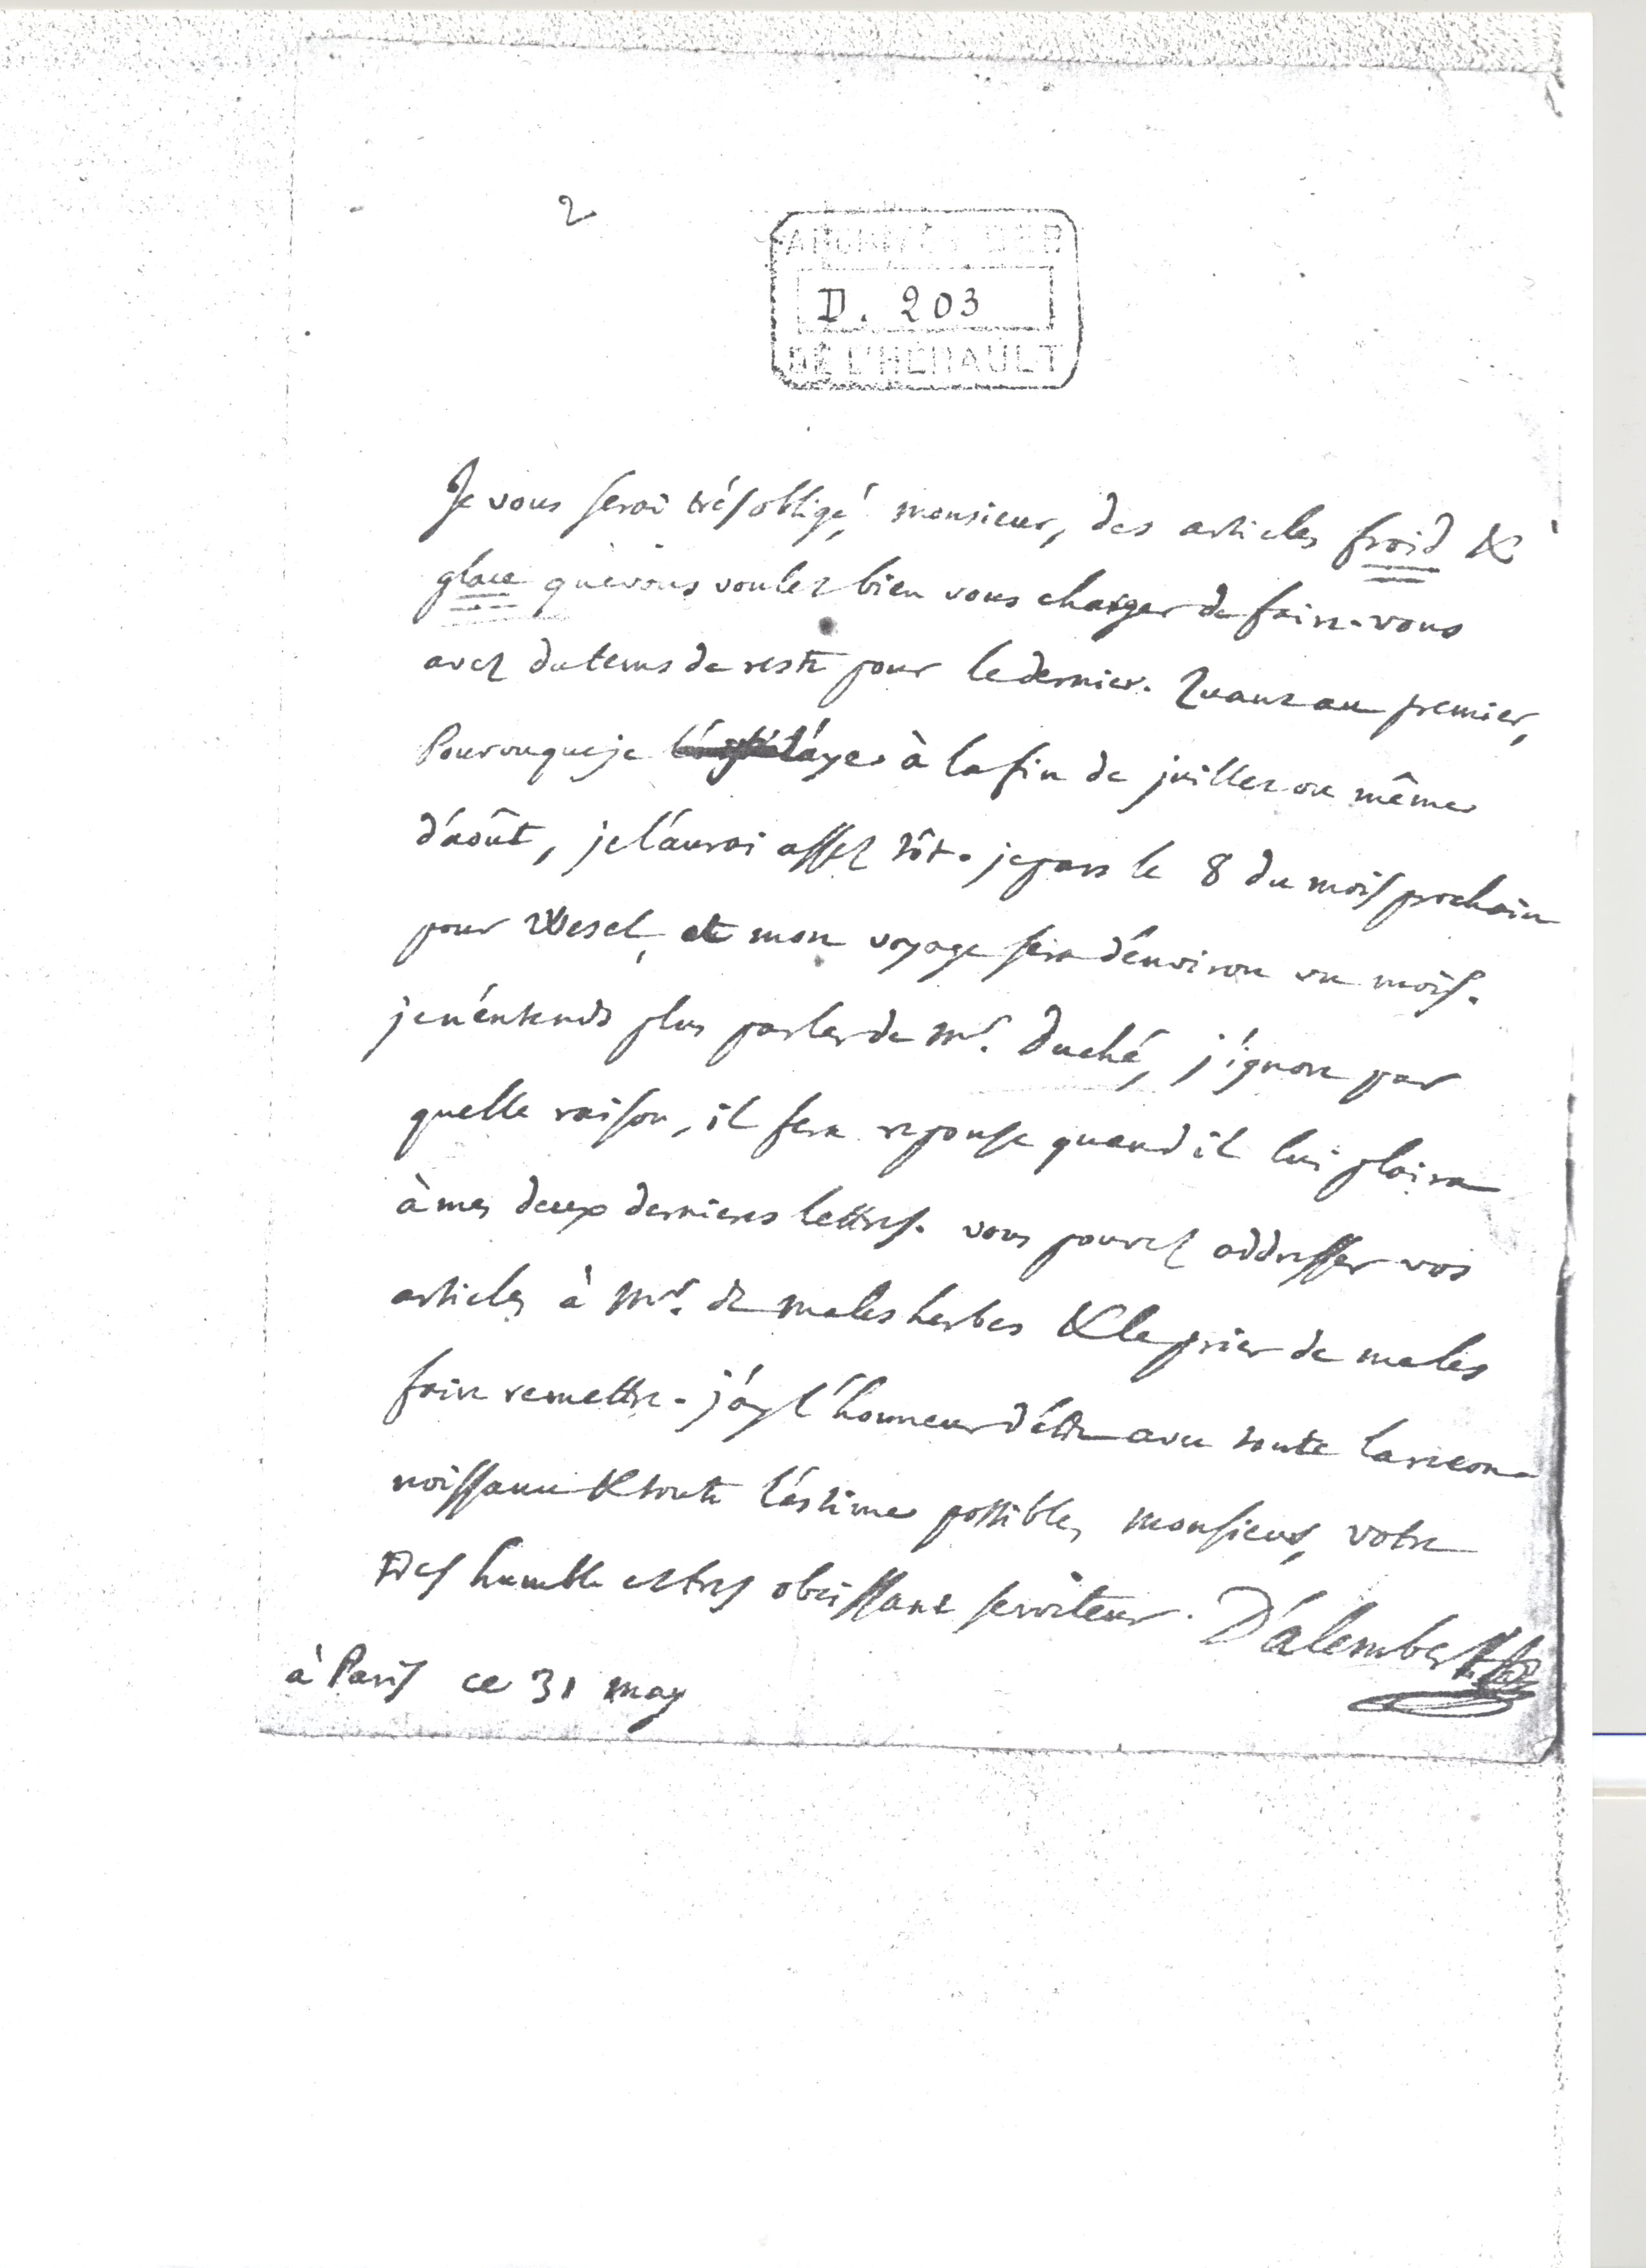 2
ARCHIVES DEP
D. 203
DE L'HERAULT
Je vous serai très obligé, monsieur, des articles froid &
glace que vous voulez bien vous charger de faire. vous
avez du tems de reste pour le dernier. Quant au premier,
Pourvu que je l'aye à la fin de juillet ou même
d'août, je l'aurai assez tôt. je pars le 8 du mois prochain
pour Wesel, et mon voyage sera d'environ un mois.
je n'entends plus parler de Mr. Duché, j'ignore par
quelle raison, il fera reponse quand il lui plaira
à mes deux dernieres lettres. vous pouvez addresser vos
articles à Mr. de malesherbes & le prier de me les
faire remettre. j'ay l'honneur d'être avec toute la recon-
noissance & toute l'estime possible, monsieur, votre
très humble et tres obeissant serviteur. D'alembert
à Paris ce 31 may